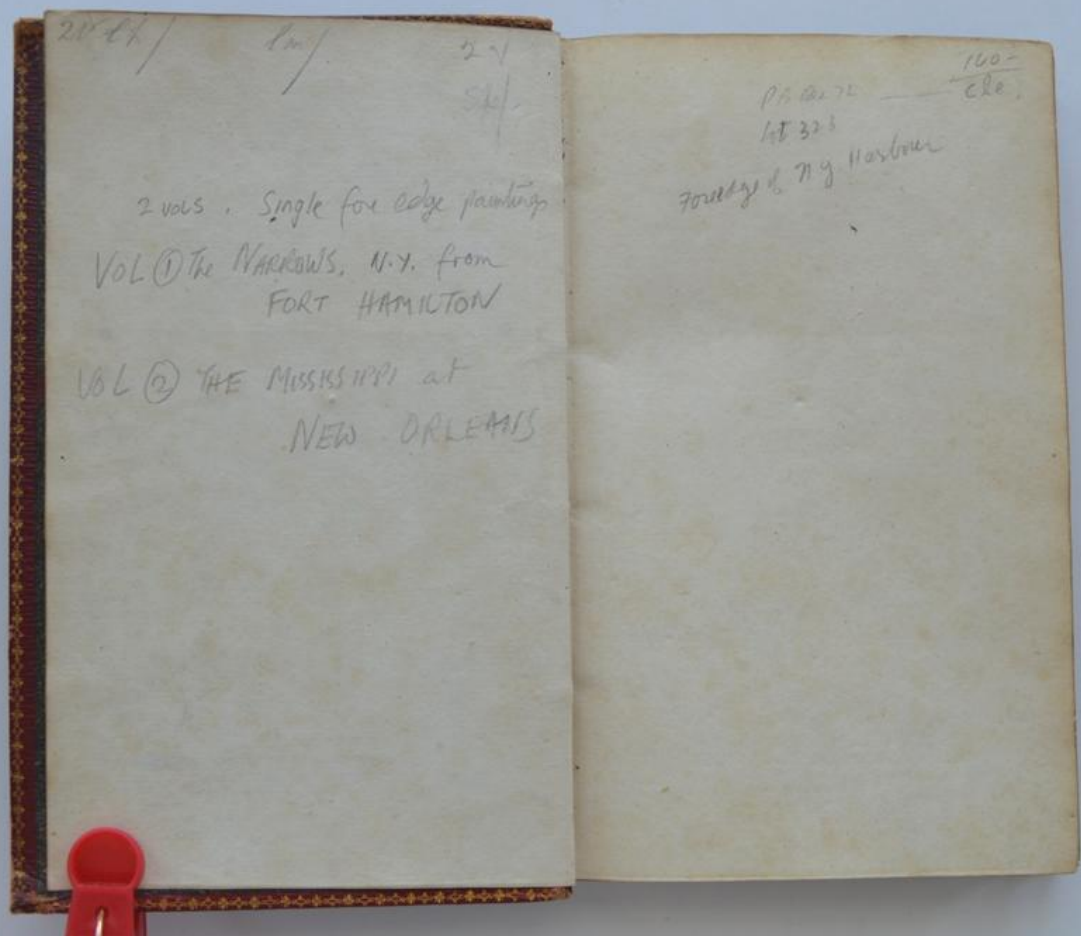 2 VOLS. Single fore edge paintings
VOL ① The NARROWS, N.Y. from
FORT HAMILTON
VOL ② THE MISSISSIPPI at
NEW ORLEANS
160-
cle.
Lot 323
Foreedge of NY Harbour